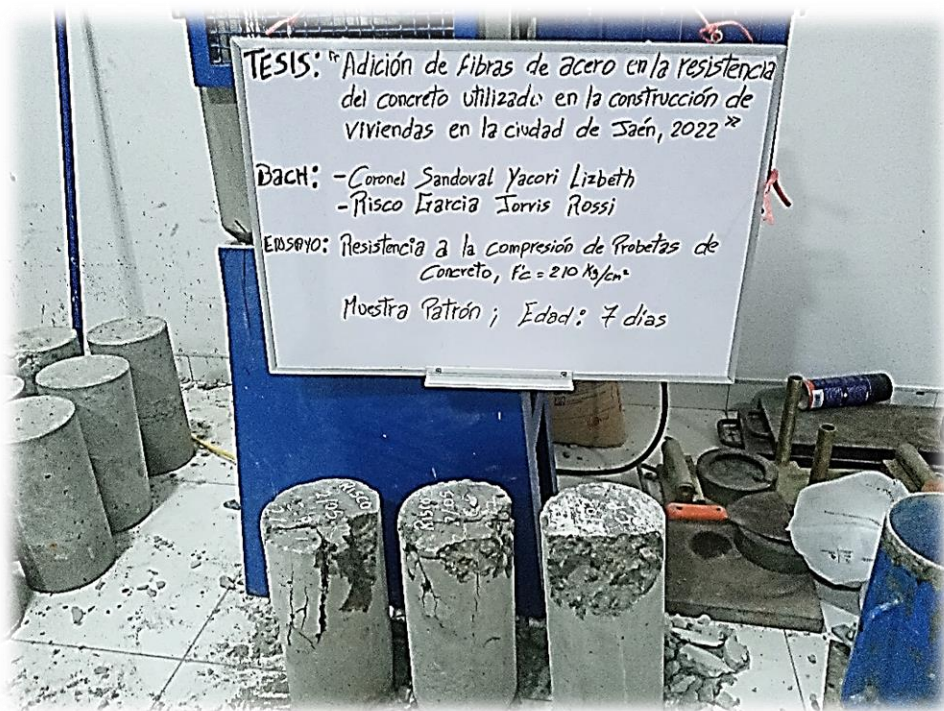 TESIS: "Adición de fibras de acero en la resistencia
del concreto utilizado en la construcción de
viviendas en la ciudad de Jaén, 2022"
BACH: - Coronel Sandoval Yacori Lizbeth
- Risco Garcia Jorvis Rossi
ENSAYO: Resistencia a la compresión de Probetas de
Concreto, F'c = 210 Kg/cm²
Muestra Patrón ; Edad: 7 días
RISCO
RISCO